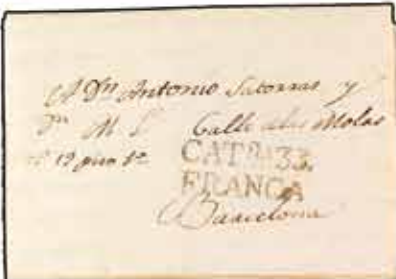 A Dn Antonio Satorras y
Dn M Sr Calle de las Molas
nº 19 piso 1º
CATª 33.
FRANCA
Barcelona